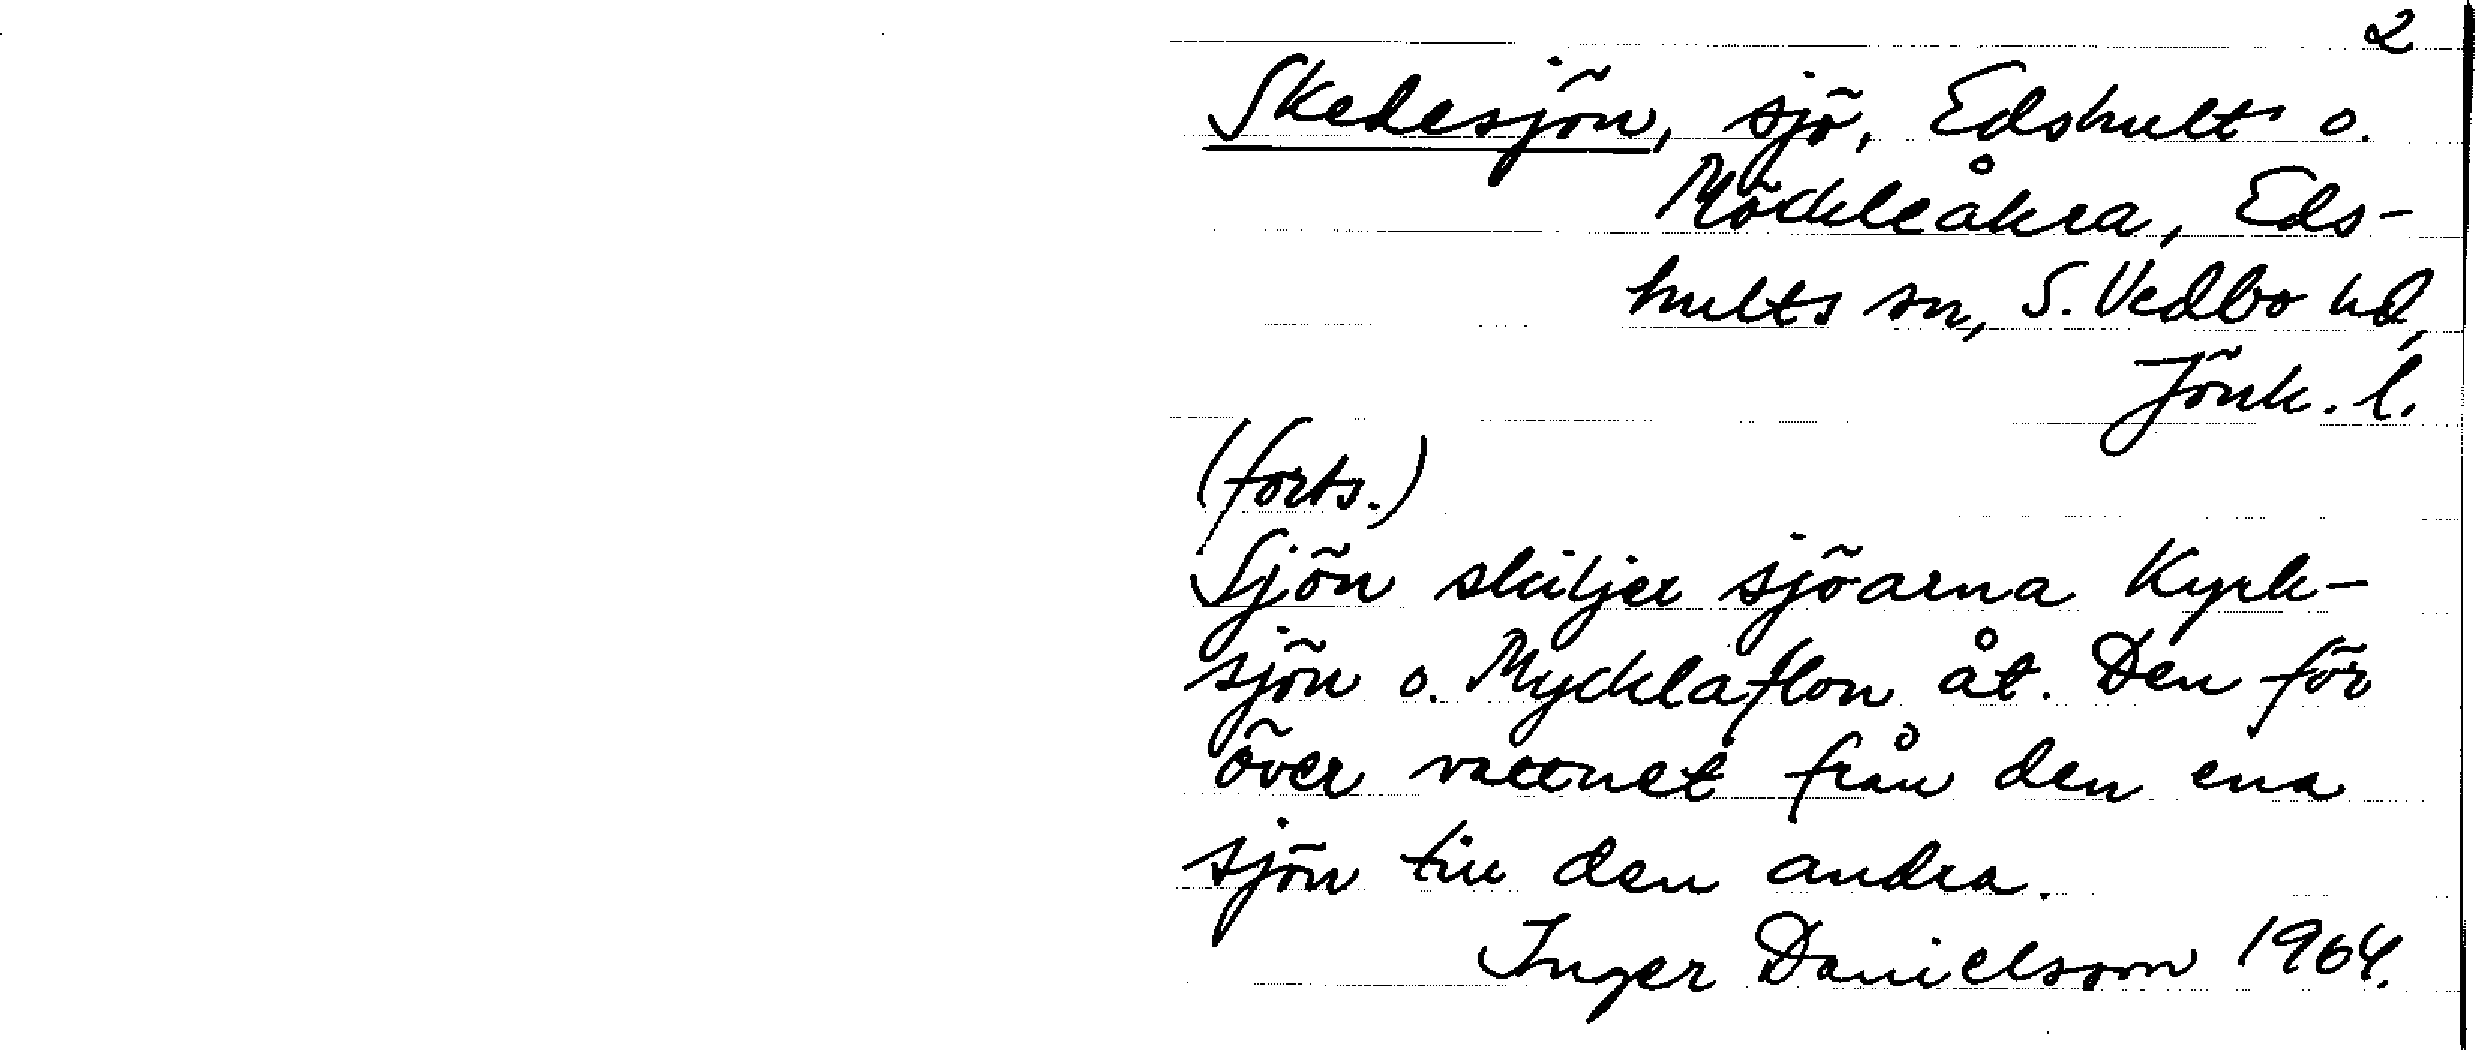 2
Skedesjön, sjö, Edshult o.
Möckleåkra, Eds-
hults sn, S. Vedbo hd,
Jönk. l.
(forts.)
Sjön skiljer sjöarna Kyrk-
sjön o. Mycklaflon åt. Den för
över vattnet från den ena
sjön till den andra.
Inger Danielsson 1964.